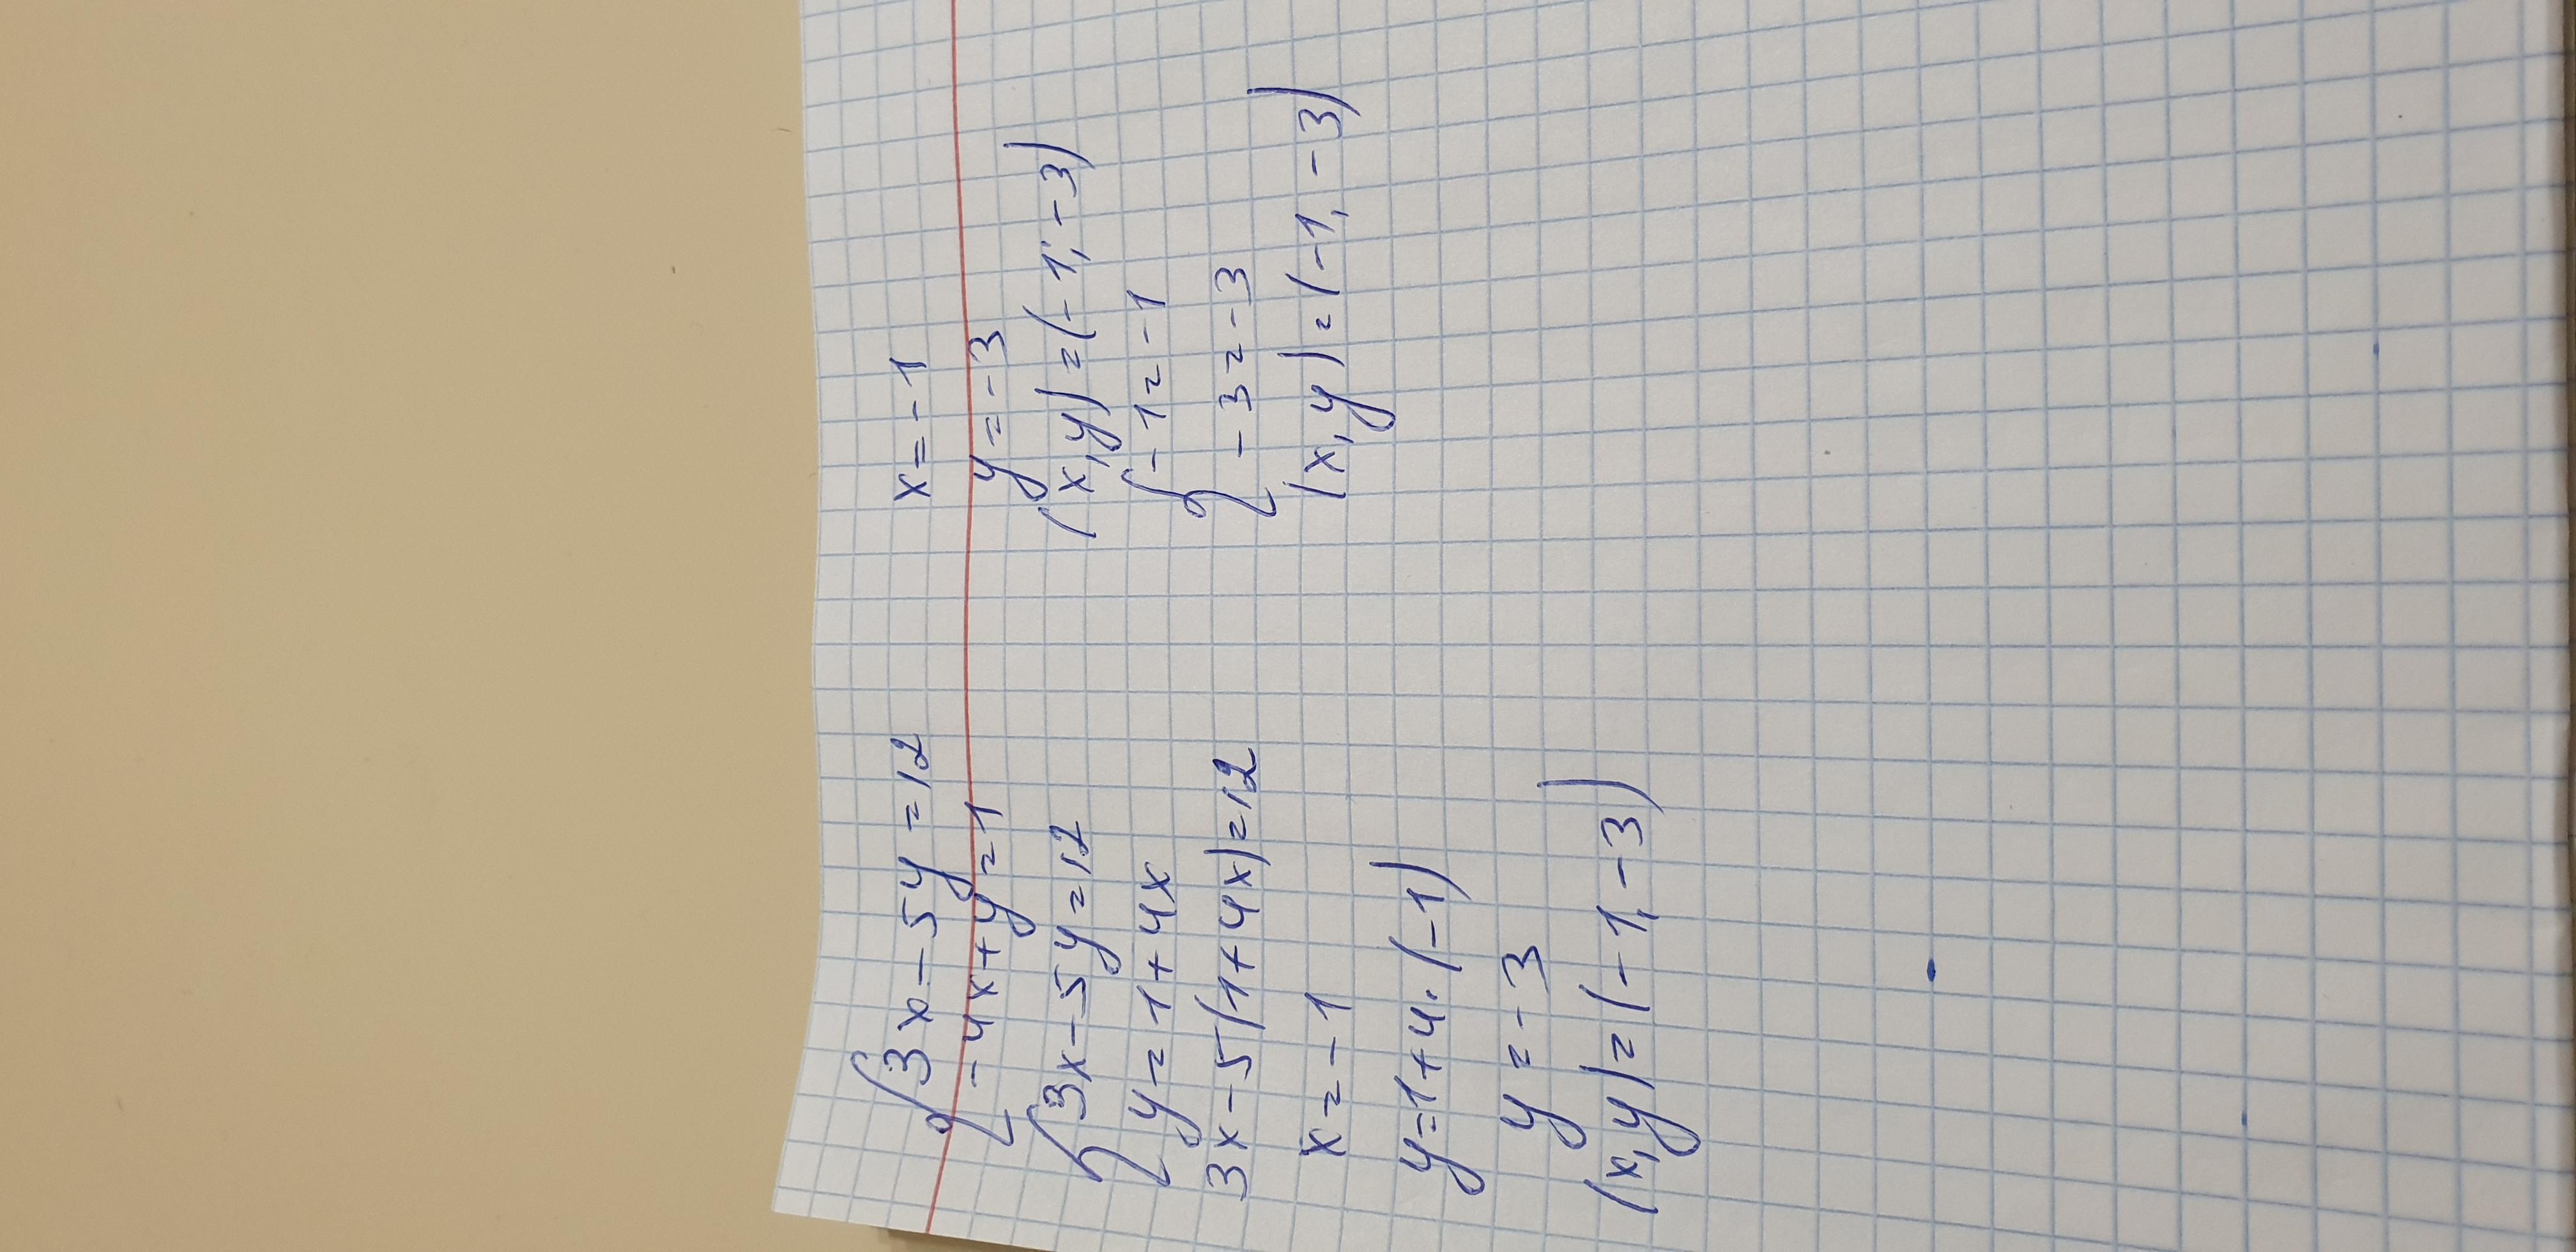 3x-5y=12
-4x+y=1
3x-5y=12
y=1+4x
3x-5(1+4x)=12
x=-1
y=1+4·(-1)
y=-3
(x,y)=(-1,-3)
x=-1
y=-3
(x,y)=(-1;-3)
-1=-1
-3=-3
(x,y)=(-1,-3)